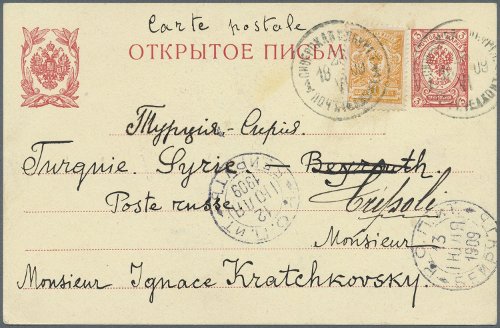 Carte postale
ОТКРЫТОЕ ПИСЬМО
Турція-Сирія.
Turquie. Syrie — Beyrouth.
Poste russe. Tripoli
Monsieur
Monsieur Ignace Kratchkovsky.
12
1909
13
1909